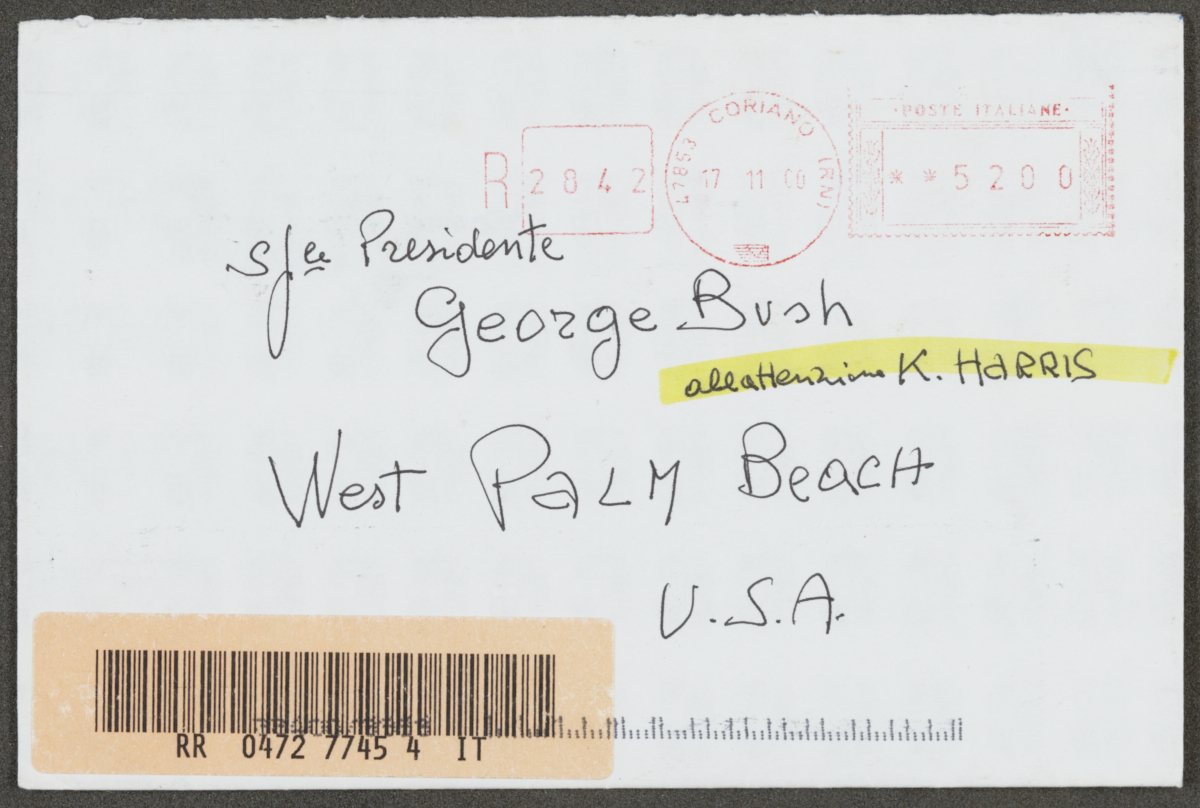 ·POSTE ITALIANE·
R 2842
47853 CORIANO (RN)
17 11 00
**5200
Presidente
George Bush
all'attenzione K. HARRIS
West PALM BEACH
U.S.A.
RR 0472 7745 4 IT